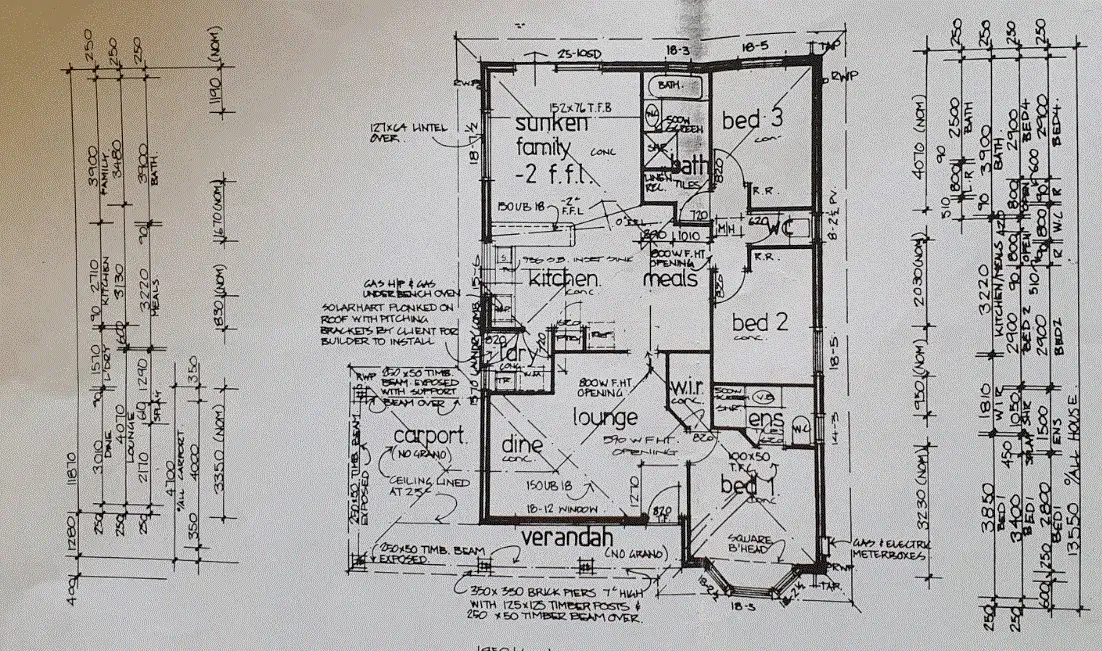 25-10SD
18-3
18-5
TAP
RWP
RWP
BATH.
152x76 T.F.B
127x64 LINTEL
OVER.
18-7½
sunken
family
CONC
-2 f.f.l.
W.C
SHR.
bath
TILES
LINEN
820
bed 3
CONC.
R.R.
150UB18
-2"
F.F.L
720
620
WC
M/H
890
1010
8-2½ P.V.
800 W.F. HT.
OPENING
R.R.
kitchen
CONC
meals
GAS H/P & GAS
UNDERBENCH OVEN
SOLARHART PLONKED ON
ROOF WITH PITCHING
BRACKETS BY CLIENT FOR
BUILDER TO INSTALL
820
720
ldry
CONC.
TR.
W.M
bed 2
CONC.
18-5
RWP
250x50 TIMB.
BEAM EXPOSED
WITH SUPPORT
BEAM OVER.
800 W.F. HT.
OPENING
w.i.r.
CONC.
SHR.
V.B
ens
TILES
620
W.C
14-3
carport.
(NO GRANO)
250x50 TIMB. BEAM
EXPOSED
CEILING LINED
AT 25C
lounge
590 W.F. HT.
OPENING
dine
CONC.
820
100x50
T.F.C.
bed 1
150UB18
1270
18-12 WINDOW
820
SQUARE
B'HEAD
verandah
(NO GRANO)
GAS & ELECTRIC
METERBOXES
RWP
TAP.
250x50 TIMB. BEAM
EXPOSED.
350x350 BRICK PIERS 7"HIGH
WITH 125x125 TIMBER POSTS &
250 x50 TIMBER BEAM OVER.
18-2½
18-5
18-2½
11870
1280
400
250
3900
FAMILY
90
2710
KITCHEN
90
1570
L'DRY
90
3010
DINE
250
250
3480
3130
600
4070
LOUNGE
250
250
3900
BATH.
90
3220
MEALS
1290
160
SPLAY
2170
250
4700
O/ALL CARPORT
350
4000
350
1190 (NOM)
1670 (NOM)
1830 (NOM)
3350 (NOM)
4070 (NOM)
2030 (NOM)
1950 (NOM)
3230 (NOM)
250
2500
BATH
90
800
L.R
510
250
3900
BATH.
90
3220
KITCHEN/MEALS
1810
W I R
3850
BED 1
250
250
2900
800
420
OPEN
800
90
2900
BED 2
1050
SHR
450
SPLAY
3400
BED 1
250
250
2900
BED 4.
600
R
90
800
W.C
510
R
2900
BED2
1500
ENS
2800
BED1
250
600
13550 O/ALL HOUSE